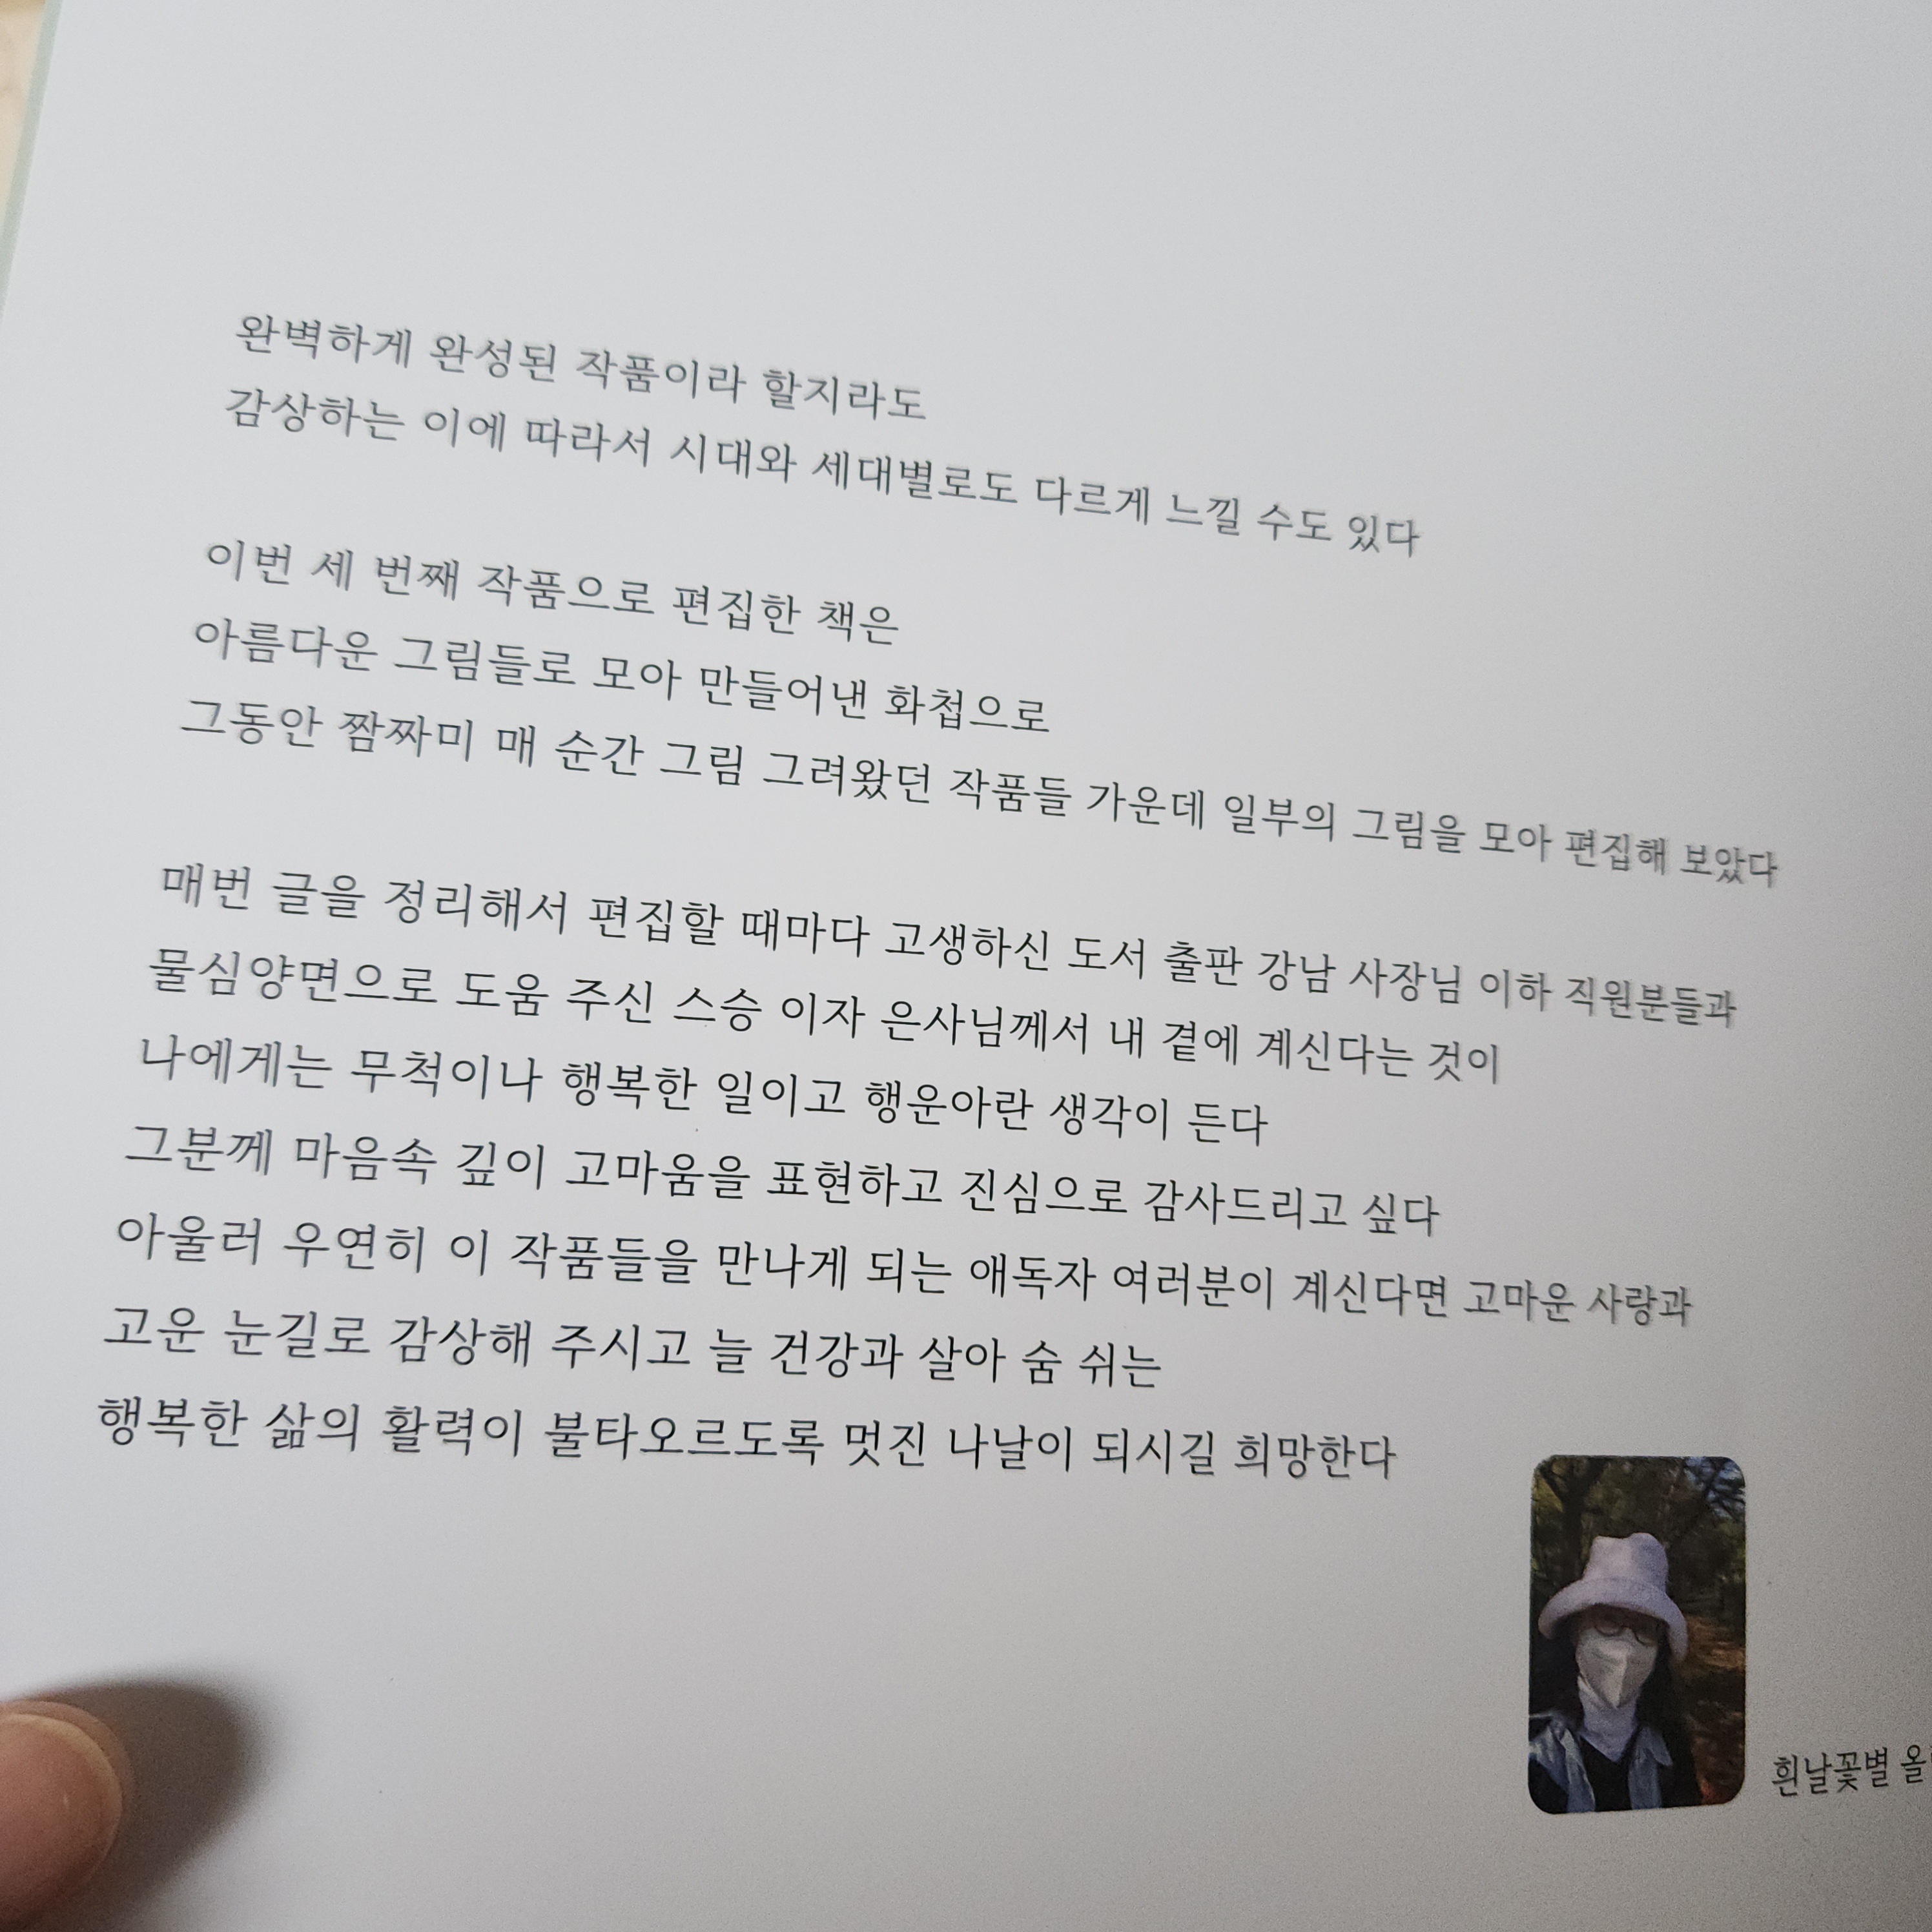 완벽하게 완성된 작품이라 할지라도
감상하는 이에 따라서 시대와 세대별로도 다르게 느낄 수도 있다
이번 세 번째 작품으로 편집한 책은
아름다운 그림들로 모아 만들어낸 화첩으로
그동안 짬짜미 매 순간 그림 그려왔던 작품들 가운데 일부의 그림을 모아 편집해 보았다
매번 글을 정리해서 편집할 때마다 고생하신 도서 출판 강남 사장님 이하 직원분들과
물심양면으로 도움 주신 스승 이자 은사님께서 내 곁에 계신다는 것이
나에게는 무척이나 행복한 일이고 행운아란 생각이 든다
그분께 마음속 깊이 고마움을 표현하고 진심으로 감사드리고 싶다
아울러 우연히 이 작품들을 만나게 되는 애독자 여러분이 계신다면 고마운 사랑과
고운 눈길로 감상해 주시고 늘 건강과 살아 숨 쉬는
행복한 삶의 활력이 불타오르도록 멋진 나날이 되시길 희망한다
흰날꽃별